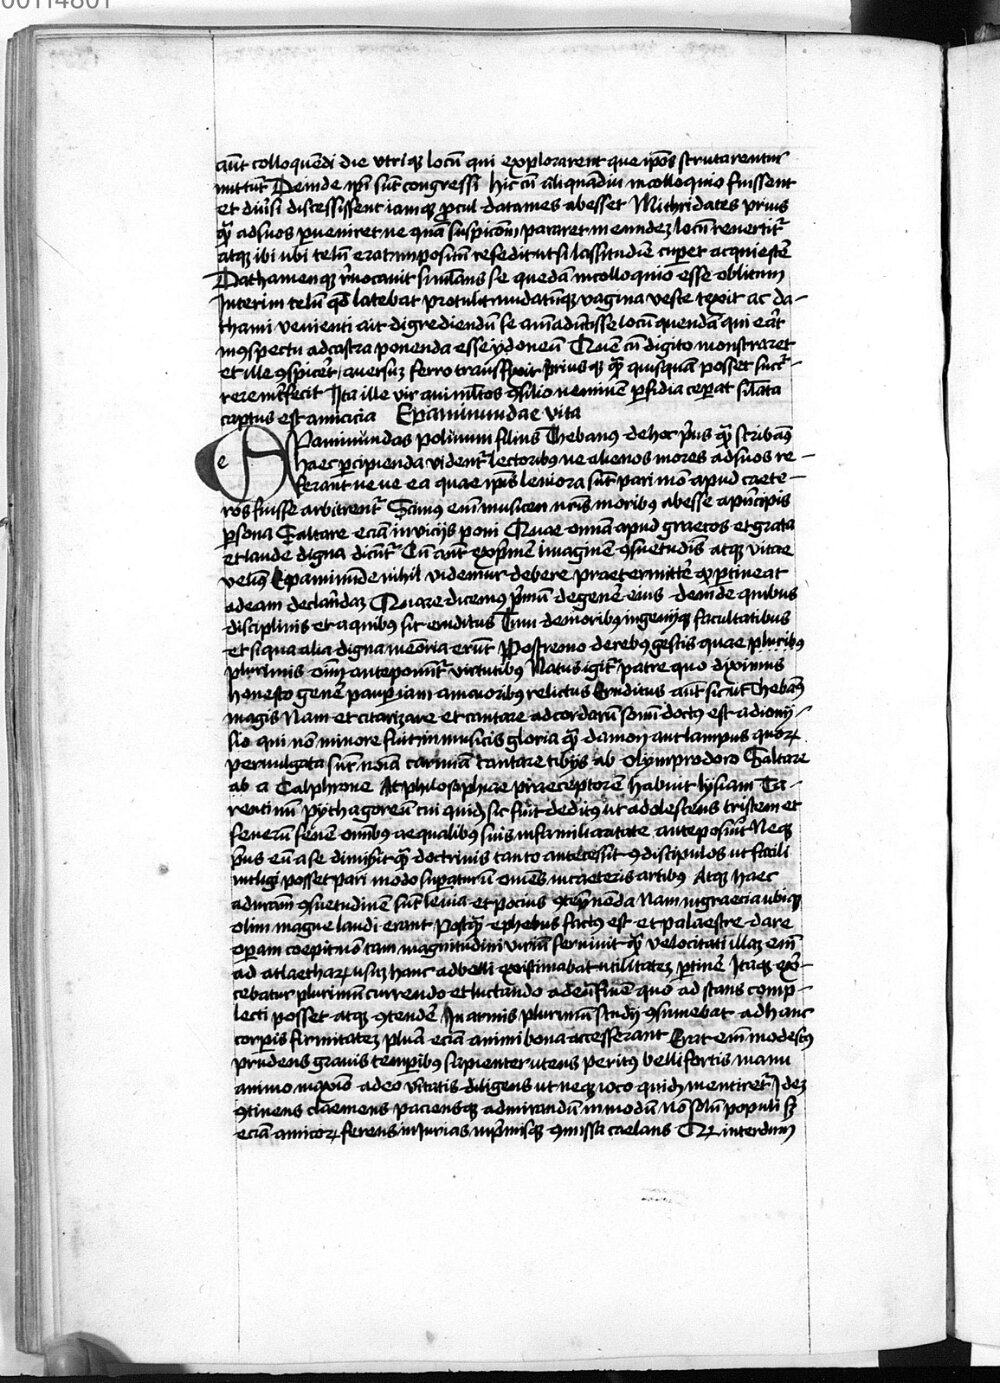 00114801
aūt colloquēdi die utriqꝫ locū qui explorarent que ip̄os scrutarentur
mittūt Deinde ip̄i sūt congressi hic cū aliquādiu in colloquio fuissent
et diūsi discessissent iamqꝫ ꝓcul datames abesset Mithridates prius
qꝫ̄ ad suos ꝑveniret ne quā suspicōm pararet in eundeꝫ locū revertit᷑
atqꝫ ibi ubi telū erat impositū resedit ut si lassitudiē cuperet acquiescē
Dathamenqꝫ r̄vocavit simulans se quedā in colloquio esse oblitum
Interim telū qđ latebat protulit nudatūqꝫ vagina veste texit ac da-
thami venienti ait digrediendū se aīmadūtisse locū quendā qui eāt
in ꝯspectu ad castra ponenda esse ydoneū Quē cū digito monstraret
et ille ꝯspicēt aversuꝫ ferro transfixit priusqꝫ qꝫ̄ quisquā posset succ̄-
rere inr̄fecit Ita ille vir qui ml̄tos ꝯsilio neminē ꝑfidia ceperat sil̄ata
captus est amicicia Epaminundae vita
e Paminūdas polinum filius Thebanꝰ de hoc p̄us qꝫ̄ scribāꝰ
haec p̄cipienda vident᷑ lectoribꝰ ne alienos mores ad suos re-
ferant neve ea quae ip̄is leniora sūt pari mō apud caete-
ros fuisse arbitrent᷑ Scimꝰ enī musicen nr̄is moribꝰ abesse a p̄ncipis
ꝑsona Saltare eciā in vicijs poni Quae omīa apud graecos et grata
et laude digna dicūt᷑ Cū aūt exp̄mē imaginē ꝯsuetudīs atqꝫ vitae
velimꝰ Epaminūde nihil videmur debere praetermittē qđ ꝑtineat
ad eam declarādaꝫ Quare dicemꝰ p̄mū de genere eius deinde quibus
disciplinis et a quibꝰ sit eruditus Tum de moribꝰ ingenijqꝫ facultatibus
et si qua alia digna memoria erūt Postremo de rebꝰ gestis quae pluribꝰ
plurimis omī anteponūt᷑ virtutibꝰ Natus igit᷑ patre quo diximus
honesto genē paup̄ iam a maioribꝰ relictus Eruditus aūt sic ut Thebanꝰ
magis Nam et citarizare et cantare ad cordarū sonū doctꝰ est a diony-
sio qui nō minore fuit in musicis gloria qꝫ̄ damon aut lampus quoꝝ
pervulgata sūt noīa carmīa cantare tibijs ab Olymprodoro Saltare
ab a Calphrone At philosophiae praeceptorē habuit lysiam Ta-
rentinū Pythagoreū cui quidē sic fuit deditꝰ ut adolescens tristem et
severū senē omībꝰ aequalibꝰ suis in familiaritate anteposūit Neqꝫ
p̄us eū a se dimisit qꝫ̄ doctrinis tanto antecessit ꝯdiscipulos ut facili
intligi posset pari modo suꝑaturū omēs in caeteris artibꝰ Atqꝫ haec
ad nr̄am ꝯsuetudinē sūt levia et pocius ꝯtēpnenda Nam in graecia ubiqꝫ
olim magne laudi erant Postqꝫ̄ ephebus factꝰ est et palaestre dare
oꝑam coepit nō tam magnitudini viriū servivit qꝫ̄ velocitati illaꝫ enī
ad atlaethaꝝ usuꝫ hanc ad belli existimabat utilitateꝫ ꝑtinē Itaqꝫ exer-
cebatur plurimū currendo et luctando ad eū finē quo ad stans comp-
lecti posset atqꝫ ꝯtendē In armis plurimū studij ꝯsumebat ad hanc
corpis firmitateꝫ plura eciā animi bona accesserant Erat enī modestꝰ
prudens gravis temꝑibꝰ sapienter utens peritꝰ belli fortis manu
animo maximo adeo vītatis diligens ut neqꝫ ioco quidē mentiret᷑ Ideꝫ
ꝯtinens claemens paciensqꝫ admirandū in modū nō solū populi sꝫ
eciā amicoꝝ ferens iniurias inp̄misqꝫ ꝯmissa caelans Qđ interdum